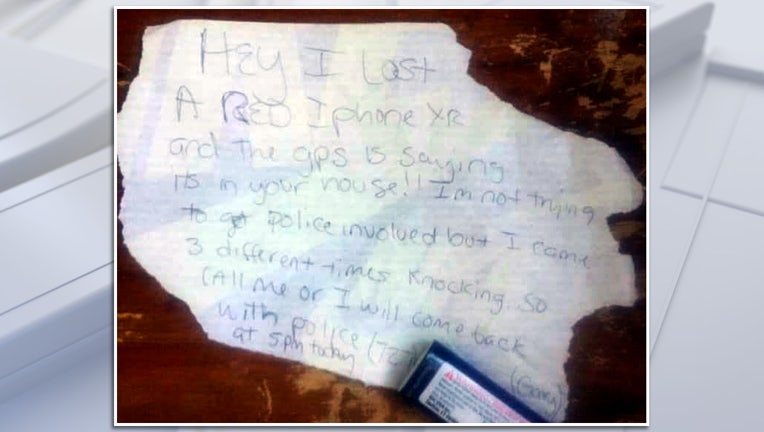 Hey I Lost
A RED Iphone XR
and the gps is saying
its in your house!! Im not trying
to get police involved but I came
3 different times Knocking so
Call me or I will come back
with police (72
at 5pm today